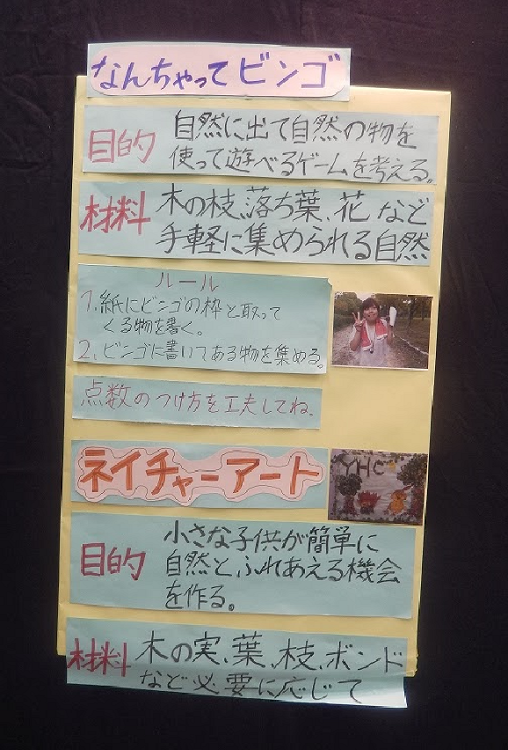 なんちゃってビンゴ
目的 自然に出て自然の物を
使って遊べるゲームを考える。
材料 木の枝、落ち葉、花 など
手軽に集められる自然
ルール
1.紙にビンゴの枠と取って
くる物を書く。
2.ビンゴに書いてある物を集める。
点数のつけ方を工夫してね。
ネイチャーアート
YHC
目的 小さな子供が簡単に
自然とふれあえる機会
を作る。
材料 木の実、葉、枝、ボンド
など必要に応じて